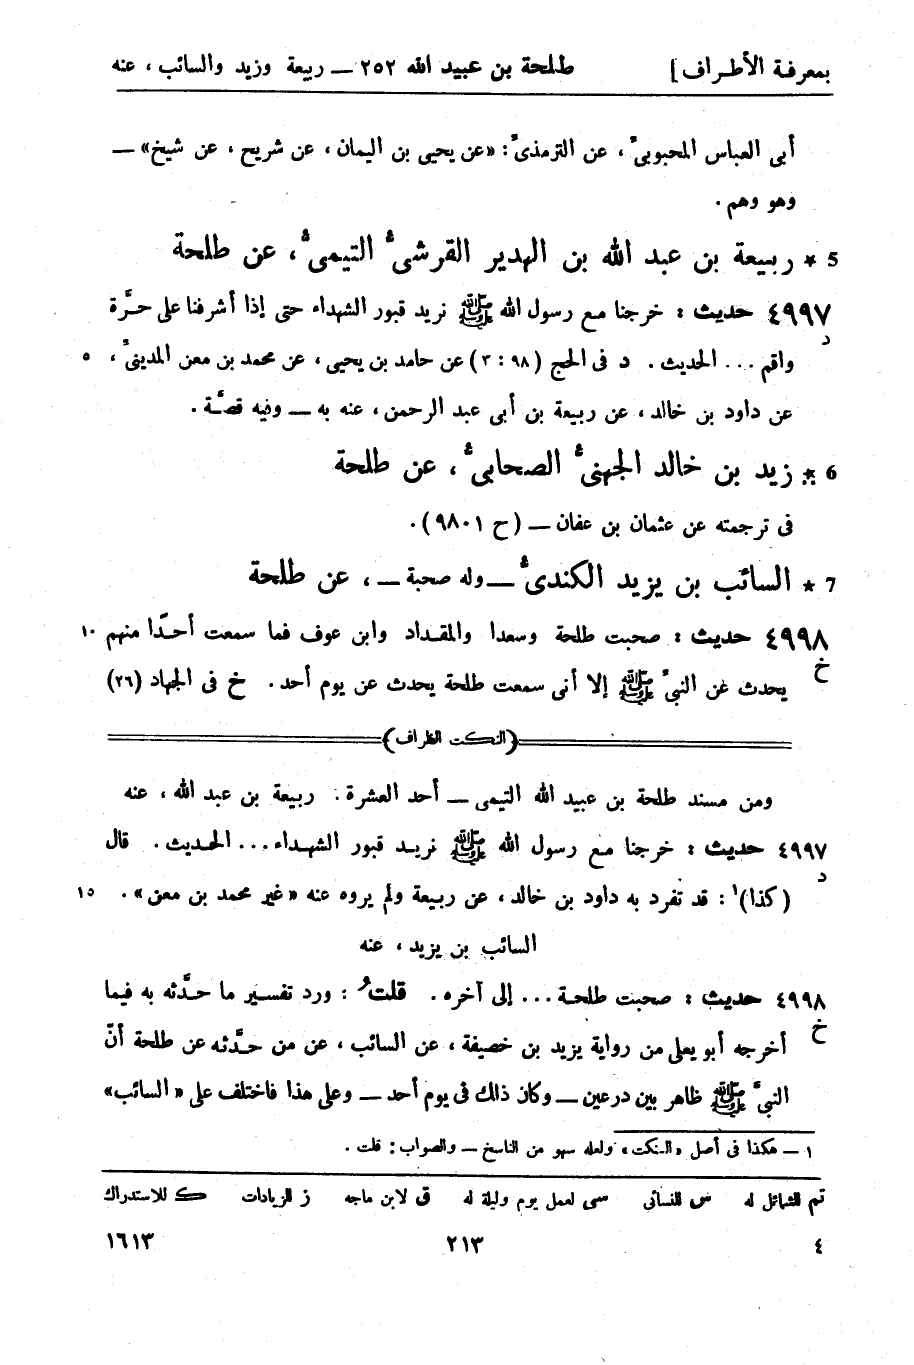 بمعرفة الأطراف] طلحة بن عبيد الله ٢٥٢ — ربيعة وزيد والسائب ، عنه
أبى العباس المحبوبىّ ، عن الترمذىّ : «عن يحيى بن اليمان ، عن شريح ، عن شيخ» —
وهو وهم .
5 * ربيعة بن عبد الله بن الهدير القرشىّ التيمىّ ، عن طلحة
٤٩٩٧ حديث : خرجنا مع رسول الله ﷺ نريد قبور الشهداء حتى إذا أشرفنا على حرَّة
د
واقم ... الحديث . د فى الحج (٩٨ : ٣) عن حامد بن يحيى ، عن محمد بن معن المدينىّ ، ٥
عن داود بن خالد ، عن ربيعة بن أبى عبد الرحمن ، عنه به — وفيه قصَّة .
6 * زيد بن خالد الجهنىّ الصحابىّ ، عن طلحة
فى ترجمته عن عثمان بن عفان — (ح ٩٨٠١) .
7 * السائب بن يزيد الكندىّ — وله صحبة — ، عن طلحة
٤٩٩٨ حديث : صحبت طلحة وسعدا والمقداد وابن عوف فما سمعت أحدًا منهم ١٠
خ
يحدث عن النبىّ ﷺ إلا أنى سمعت طلحة يحدث عن يوم أحد . خ فى الجهاد (٢٦)
(النكت الظراف)
ومن مسند طلحة بن عبيد الله التيمى — أحد العشرة . ربيعة بن عبد الله ، عنه
٤٩٩٧ حديث : خرجنا مع رسول الله ﷺ نريد قبور الشهداء ... الحديث . قال
د
(كذا)١ : قد تفرد به داود بن خالد ، عن ربيعة ولم يروه عنه «غير محمد بن معن» . ١٥
السائب بن يزيد ، عنه
٤٩٩٨ حديث : صحبت طلحة ... إلى آخره . قلتُ : ورد تفسير ما حدَّثه به فيما
خ
أخرجه أبو يعلى من رواية يزيد بن خصيفة ، عن السائب ، عن من حدَّثه عن طلحة أنّ
النبىّ ﷺ ظاهر بين درعين — وكان ذلك فى يوم أحد — وعلى هذا فاختلف على «السائب»
١ — هكذا فى أصل «النكت» ولعله سهو من الناسخ — والصواب : قلت .
تم للشمائل له س للنسائى سى لعمل يوم وليلة له ق لابن ماجه ز للزيادات ك للاستدراك
٤ ٢١٣ ١٦١٣